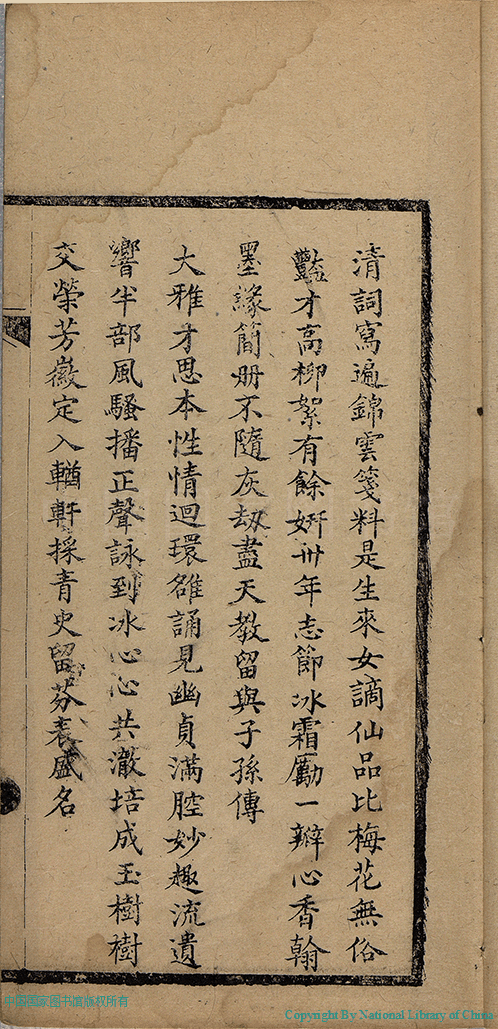 清詞寫遍錦雲箋料是生來女謫仙品比梅花無俗
豔才高柳絮有餘妍卅年志節冰霜勵一瓣心香翰
墨緣簡册不隨灰劫盡天教留與子孫傳
大雅才思本性情迴環雒誦見幽貞滿腔妙趣流遺
響半部風騷播正聲詠到冰心心共澈培成玉樹樹
交榮芳徽定入輶軒採青史留芬表盛名
中国国家图书馆版权所有
Copyright By National Library of China